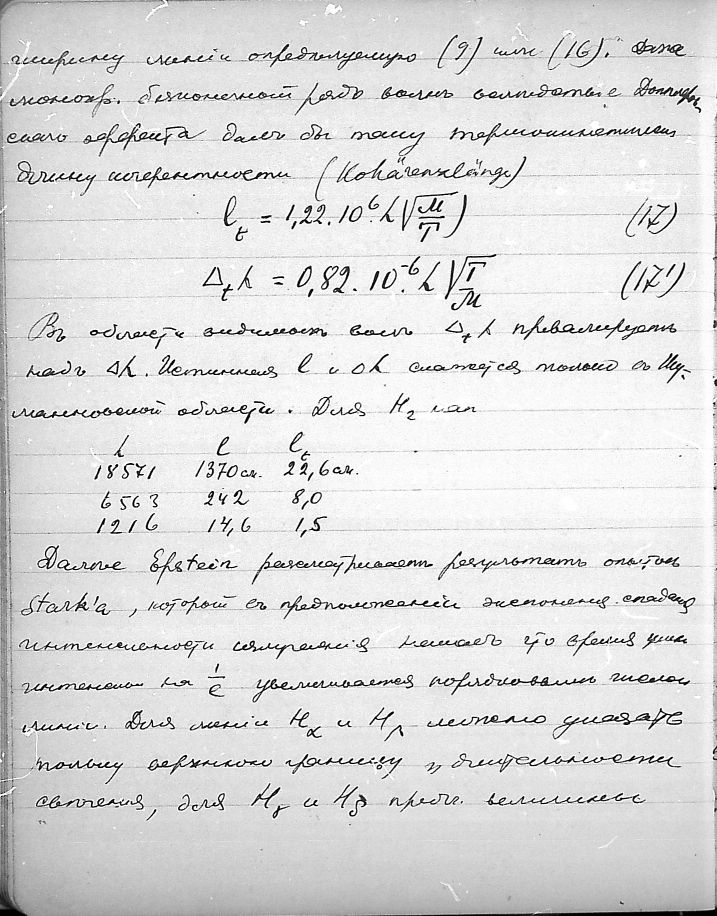 ширину линіи определяемую (9) или (16). Даже
монохр. безконечный рядъ волнъ вслѣдствіе Допплеров
скаго эффекта далъ бы такую термокинетическую
длину когерентности (Kohärenzlänge)
l_t = 1,22.10^6.λ√(M/T) ) (17)
Δ_t λ = 0,82.10^-6.λ√(T/M) (17')
Въ области видимыхъ волнъ Δ_t λ превалируетъ
надъ Δλ. Истинная l и Δλ скажется только въ Шу-
манновской области. Для H_2 нап
λ l l_t
18571 1370 см. 22,6 см.
6563 242 8,0
1216 14,6 1,5
Далѣе Epstein разсматриваетъ результаты опытовъ
Stark'a, который въ предположеніи экспоненц. спаданія
интенсивности излученія нашелъ что время
интенсивн на 1/e увеличивается порядковымъ числомъ
линіи. Для линіи H_α и H_β можно указать
только верхнюю границу длительности
свѣченія, для H_γ и H_δ величины